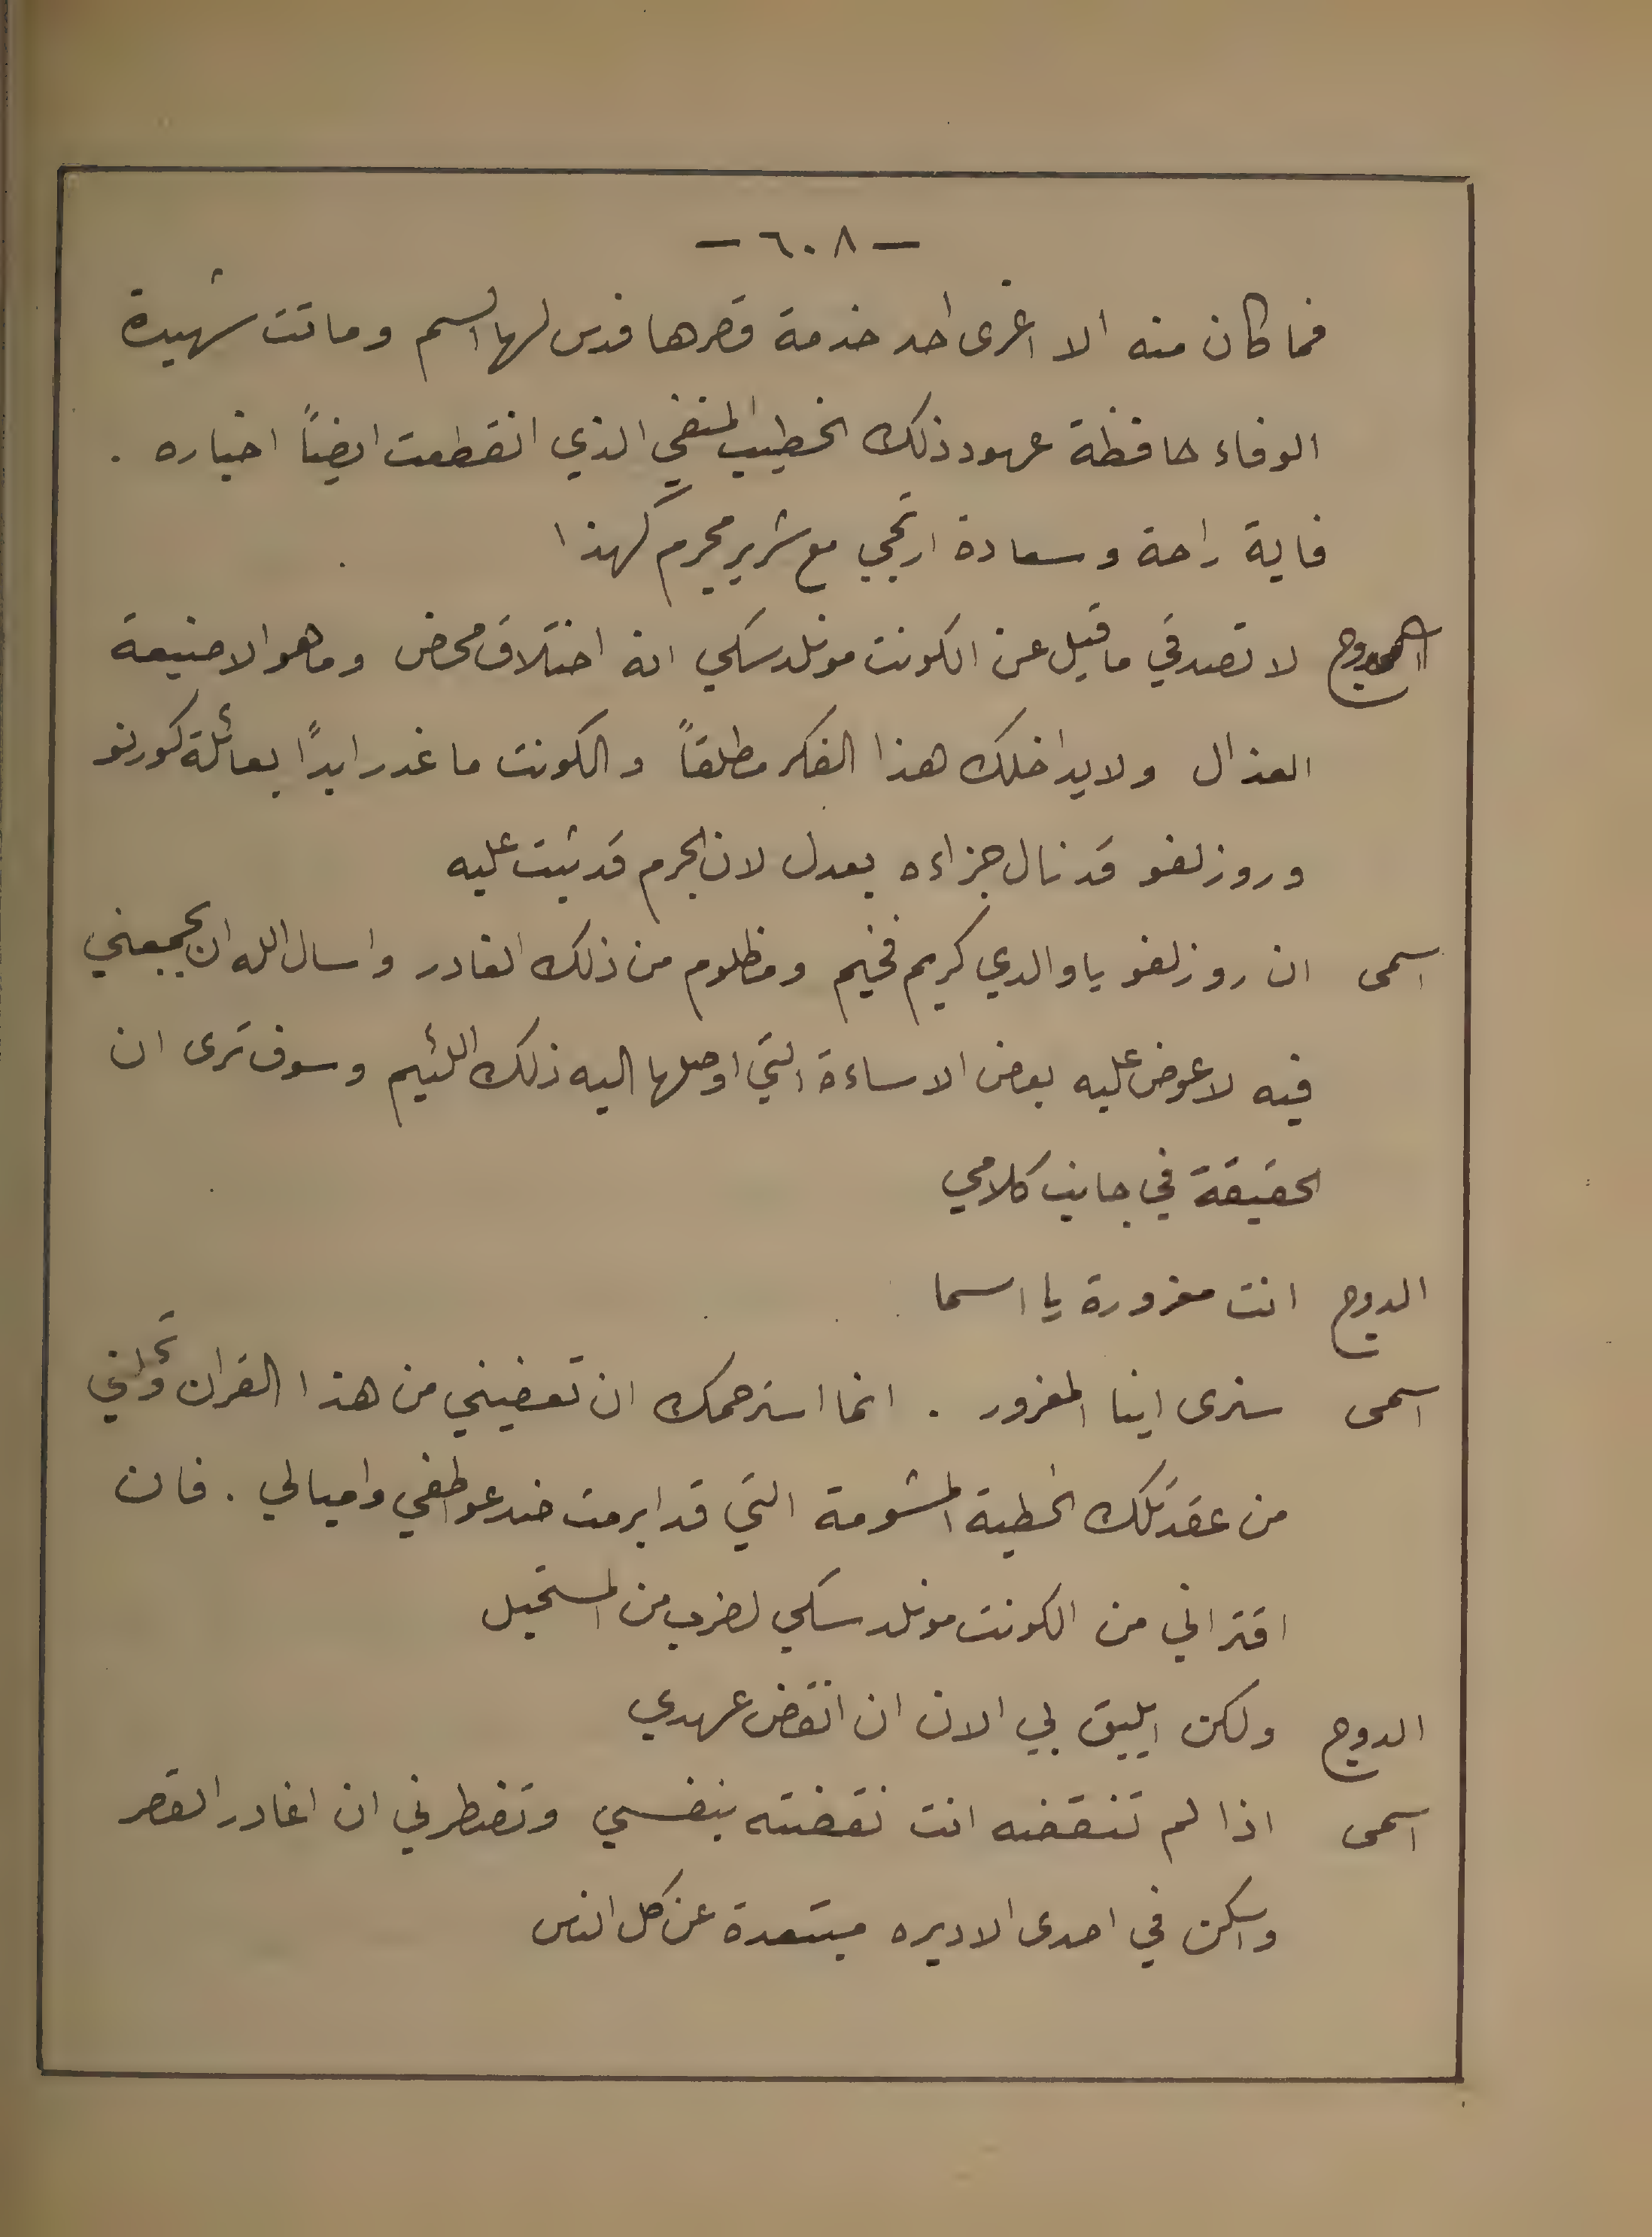 — ٦٠٨ —
فما كان منه الا اغرى احد خدمة قصرها فدس لها السم وماتت شهيدة
الوفاء حافظة عهود ذلك الخطيب المنفي الذي انقطعت ايضاً اخباره .
فاية راحة وسعادة ارتجي مع شرير مجرم كهذا
الدوج لا تصدقي ما قيل عن الكونت مونلدسكي انه اختلاق محض وما هو الا صنيعة
العذال ولا يداخلك هذا الفكر مطلقاً والكونت ما غدر ابدًا بعائلة كورنو
وروزلفو قد نال جزاءه بعدل لان الجرم قد ثبت عليه
اسمى ان روزلفو يا والدي كريم فخيم ومظلوم من ذلك الغادر واسال الله ان يجمعني
فيه لاعوض عليه بعض الاساءة التي اوصلها اليه ذلك اللئيم وسوف ترى ان
الحقيقة في جانب كلامي
الدوج انت مغرورة يا اسما
اسمى سنرى اينا المغرور . انما استرحمك ان تعفيني من هذا القران وتحلني
من عقد تلك الخطبة المشومة التي قد ابرمت ضد عواطفي واميالي . فان
اقتراني من الكونت مونلدسكي لضرب من المستحيل
الدوج ولكن ايليق بي الان ان انقض عهدي
اسمى اذا لم تنقضه انت نقضته بنفسي وتضطرني ان اغادر القصر
واسكن في احدى الاديره مبتعدة عن كل الناس